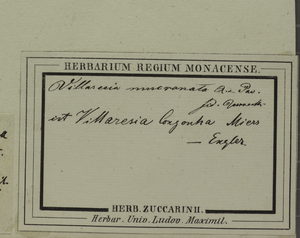 HERBARIUM REGIUM MONACENSE.
Villaresia mucronata R. et Pav.
fid.
est Villaresia Congonha Miers
— Engler.
HERB. ZUCCARINII.
Herbar. Univ. Ludov. Maximil.